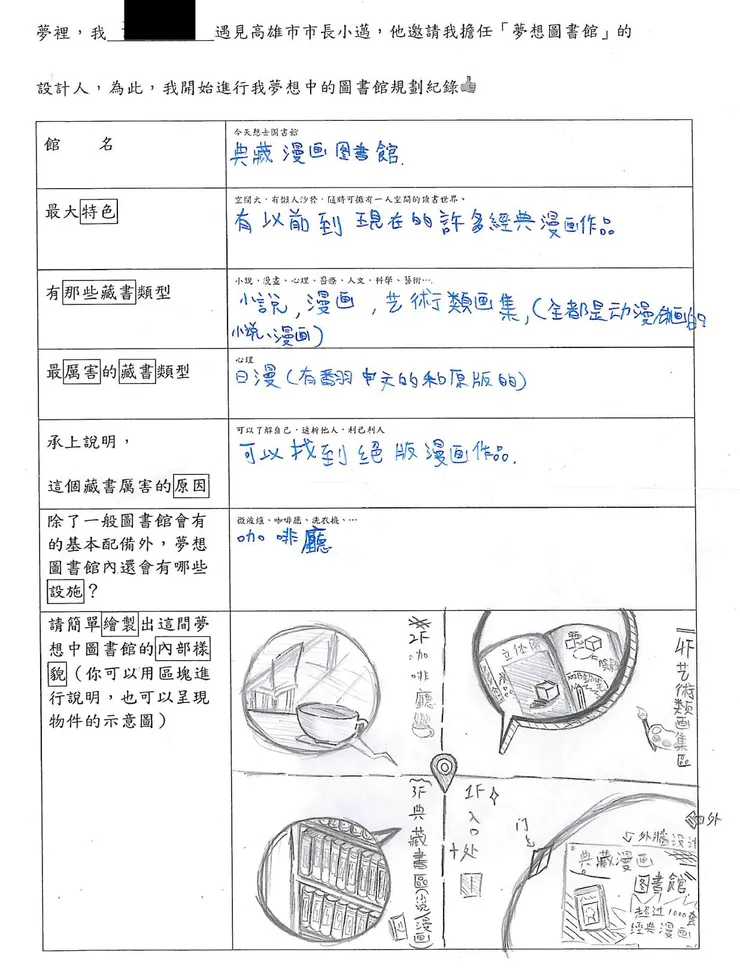 夢裡，我 遇見高雄市市長小邁，他邀請我擔任「夢想圖書館」的
設計人，為此，我開始進行我夢想中的圖書館規劃紀錄
館 名
今天想去圖書館
典藏漫画図書館.
最大特色
空間大，有懶人沙發，隨時可擁有一人空間的讀書世界。
有以前到現在的許多經典漫画作品
有那些藏書類型
小說、漫畫、心理、醫療、人文、科學、藝術….
小說，漫画，艺術類画集，(全都是动漫
小说、漫画)
最厲害的藏書類型
心理
日漫(有翻中文的和原版的)
承上說明，
這個藏書厲害的原因
可以了解自己，透析他人，利己利人
可以找到絕版漫画作品.
除了一般圖書館會有
的基本配備外，夢想
圖書館內還會有哪些
設施？
微波爐、咖啡廳、洗衣機、…
咖啡廳
請簡單繪製出這間夢
想中圖書館的內部樣
貌（你可以用區塊進
行說明，也可以呈現
物件的示意圖）
2F咖啡廳
4F艺術類画集區
立体
3F典藏書區(小說/漫画)
1F入口+外
门
外
外牆設計
典藏漫画
図書館
超过1000套
經典漫画